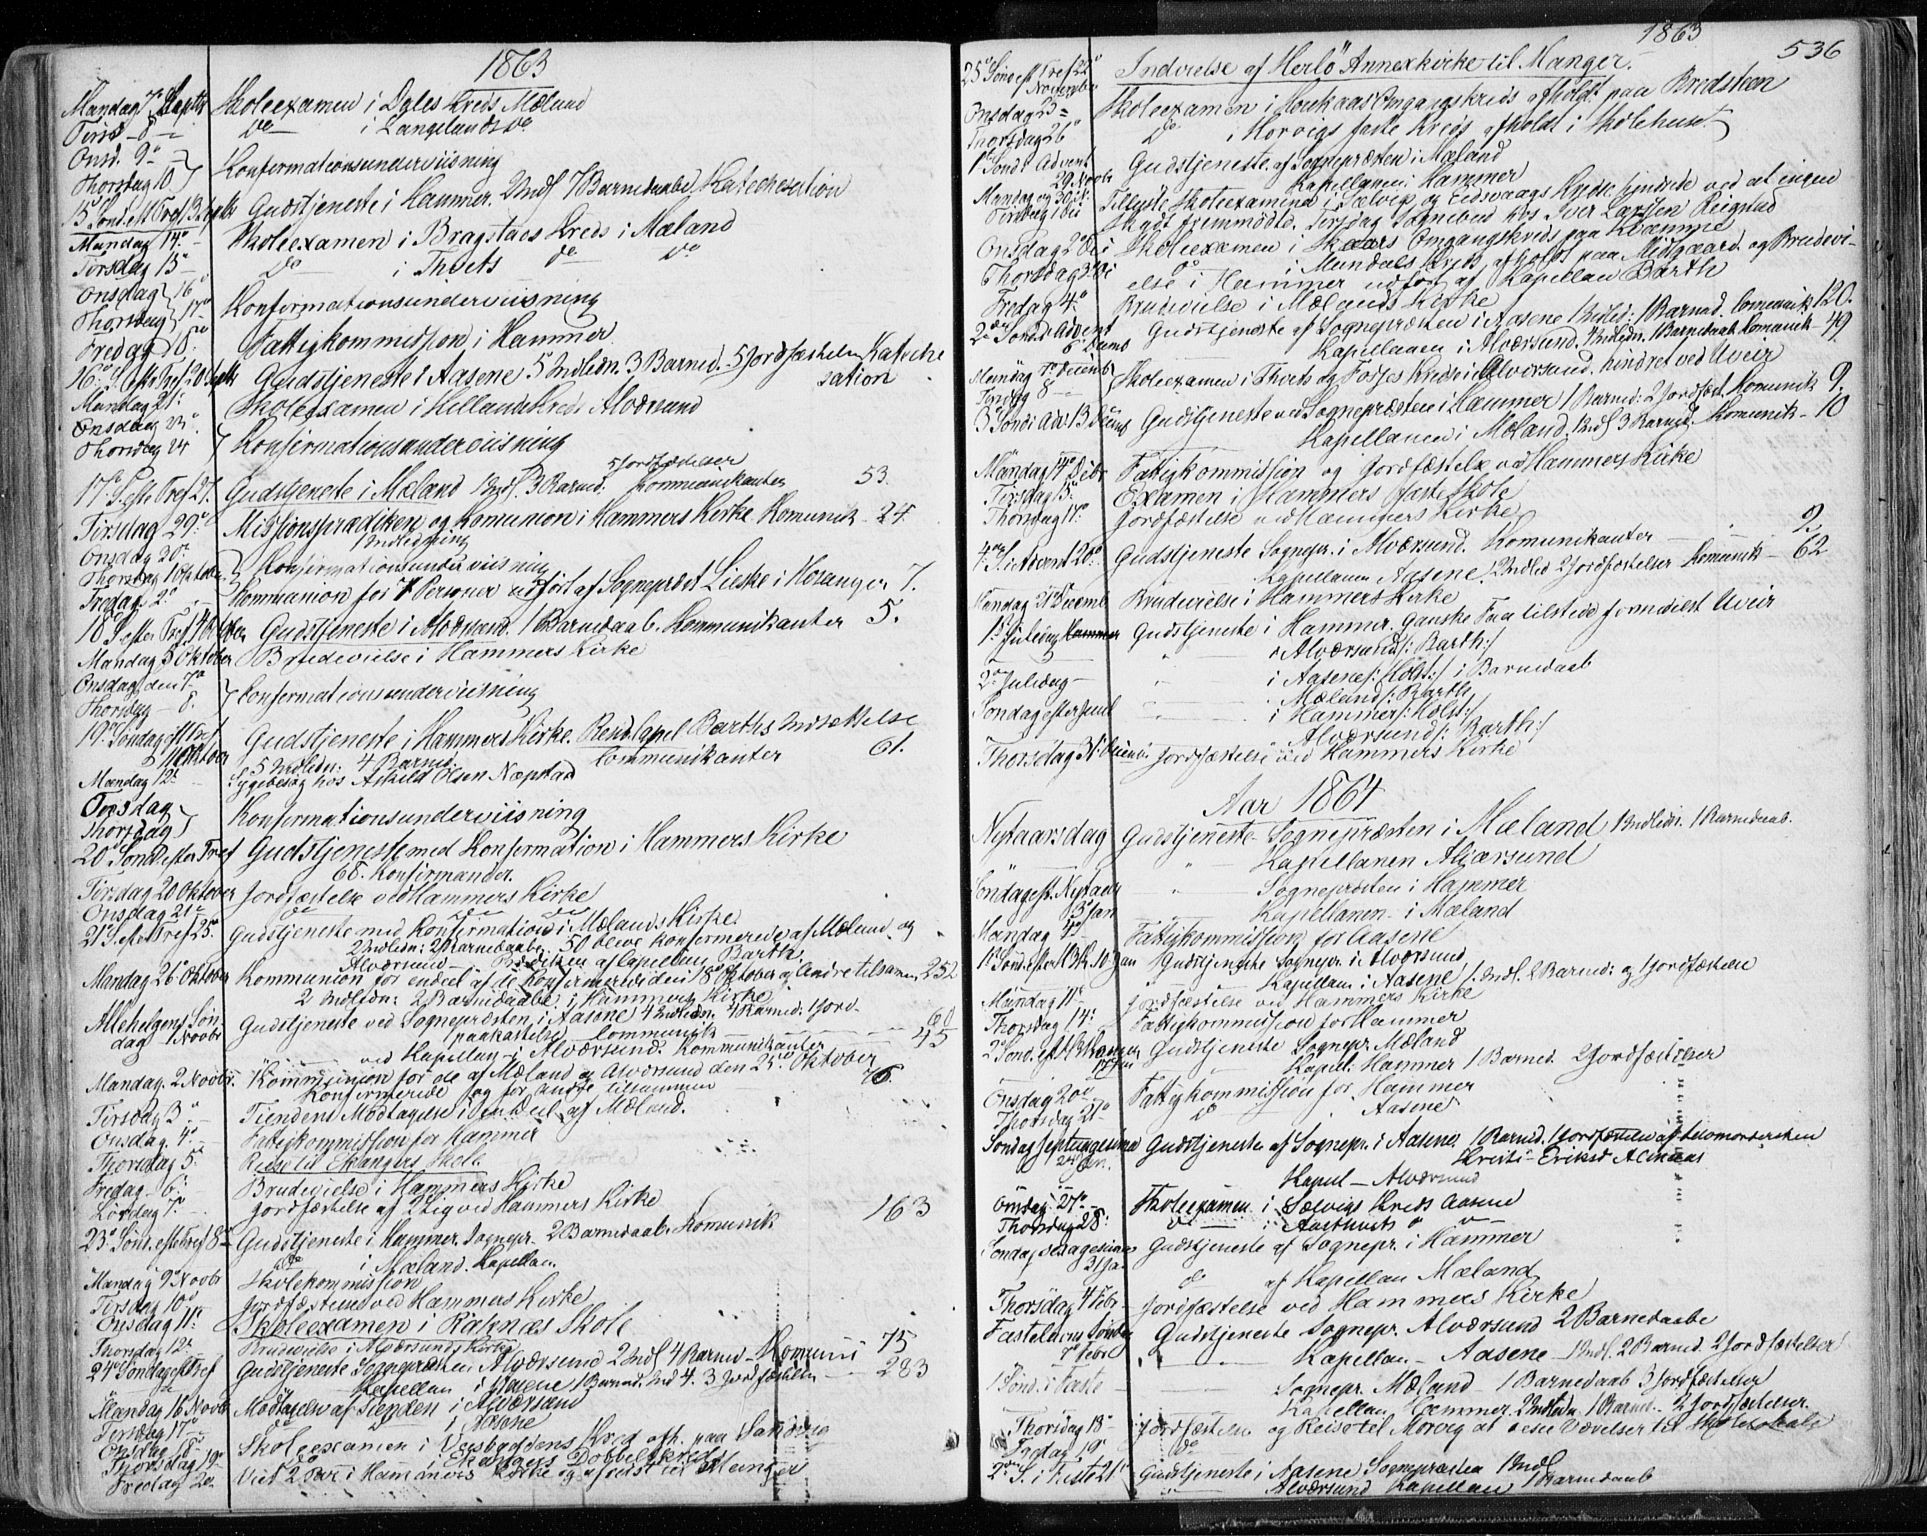 1863
Mandag 7de Septbr Skoleexamen i Dales Kreds Mæland
Tirsd. 8 - do i Langelands do
Onsd. 9o
Thorsdag 10 } Konfirmationsunderviisning
15 Sönd. eft Tref 13 Septb Gudstjeneste i Hammer. 2 Indl 7 Barnedaabe Katechesation
Mandag 14o - Skoleexamen i Bragstads Kreds i Mæland
Tirsdag 15 - do i Thvets do do
Onsdag 16o
Thorsdag 17o } Konfirmationsunderviisning
Fredag 18o Fattigkommission i Hammer
16o S. efter Tref 20 Septb Gudstjeneste i Aasene 5 Indledn. 3 Barned. 5 Jordfæstelser Kateche
sation
Mandag 21: Skoleexamen i Hellands Kreds Alværsund
Onsdag 23o.
Thorsdag 24 } Konfirmationsunderviisning
17de S. efter Tref 27. Gudstjeneste i Mæland 1 Indl. 3 Barned. 5 Jordfæstelser Kommunikanter 53.
Tirsdag 29o Missionsprædiken og Komunion i Hammers Kirke Komunik - 24.
1 Indledning
Onsdag 30.
Thorsdag 1 Oktober } Konfirmationsunderviisning
Fredag 2o. Kommunion for 7 Personer udført af Sognepræst Lieske i Hosanger 7.
18de S. efter Tref 4 Oktober Gudstjeneste i Alværsund. 1 Barnedaab. Kommunikanter 5.
Mandag 5 Oktober Brudevielse i Hammers Kirke
Onsdag den 7o
Thorsdag - 8. } Konfirmationsunderviisning
19o Söndag eft Tref
11 Oktober Gudstjeneste i Hammers Kirke. Resid. Capel Barths Indsættelse
5 Indledn: 4 Barned. Communikanter 61.
Mandag 12: - Sygebesøg hos Askild Olsen Næpstad
Torsdag
Thorsdag } Konfirmationsunderviisning
20 Sönd efter Tref Gudstjeneste med Konfirmation i Hammers Kirke
68. Konfirmander.
Tirsdag 20 Oktober Jordfæstelse ved Hammers Kirke
Onsdag 21o - do do do
21 S. efter Tref 25o. Gudstjeneste med Konfirmation i Mælands Kirke
2 Indledn: 2 Barnedaabe. 50 bleve konfirmerede af Mæland og
Alværsund - Prædiken af Capellan Barth.
Mandag 26o Oktober Kommunion for endeel af de Konfirmerede den 18 Oktober og Andre tilsamen 252
2 Indledn: 2 Barnedaabe i Hammers Kirke
Allehelgens Søn
dag 1 Novbr Gudstjeneste ved Sognepræsten i Aasene 4 Indledn. 4 Barned: 1 Jord-
paakastelse Communik - - - 60
- ved Kapellan i Alværsund. Kommunikanter 45
Mandag. 2 Novbr. Kommunion for de af Mæland og Alværsund den 25o Oktober
Konfirmerede og for andre tilsammen 76.
Tirsdag 3o - Tiendens Modtagelse i en Deel af Mæland.
Onsdag. 4o - Fattigkommission for Hammer
Thorsdag 5o Reise til Ekangers Skole
Fredag - 6: - Brudevielse i Hammers Kirke
Lørdag 7o - Jordfæstelse af 2 Lig ved Hammers Kirke
23o Sönd. efter Tref 8o Gudstjeneste i Hammer. Sognepr. 2 Barnedaab. Komunik 163
do i Mæland. Kapellan
Mandag 9o Novbr Skolekommission
Tirsdag 10o Jordfæstelse ved Hammers Kirke
Onsdag 11: Skoleexamen i Rasnæs Skole
Thorsdag 12: - Brudevielse i Alværsunds Kirke
24o Söndag eft Tref Gudstjeneste Sognepræsten Alværsund 2 Indl 4 Barned - Komuni 75
Kapellan i Aasene 1 Barned. Ind 4. 3 Jordfæstelser - 283
Mandag 16 Novbr Modtagelse af Tienden i Alværsund
Tirsdag 17o do do i Aasene
Onsdag 18 - Skoleexamen i Kreds afh. paa Sandvig
Thorsdag 19o - i Ekangers Dobbeltkreds
Fredag 20 Viet 2 Par i Hammers Kirke og afreist til Manger
1863
536
25o Sönd eft Tref 22o November Indvielse af Herlö Annexkirke til Manger.
Onsdag 25 - Skoleexamen i Omgangskreds afholdt paa Bredsteen
Thorsdag 26o do i Horvigs faste Kreds afholdt i Skolehuset
1ste Sönd i Advent Gudstjeneste af Sognepræsten i Mæland
29 Novbr Kapellanen i Hammer
Mandag og 30 Novbr
Tirsdag 1 Dec Tillyste Skoleexamina i Sælvig og Eidsvaags Kredse hindrede ved at ingen
Skyds fremmødte. Tirsdag Sognebud hos Iver Larssen Reignad
Onsdag 2o Dec Skoleexamen i Skaars Omgangskreds paa Kvamme
Thorsdag 3o Dec do i Mundals Kreds afholdt paa Midgaard og Brudevi-
else i Hammer udført af Kapellan Barth
Fredag 4o Brudevielse i Mælands Kirke
2den Sönd. i Advent Gudstjeneste af Sognepræsten i Aasene 1 Indled: 1 Barned. Comunik 120.
6 Decmb Kapellanen i Alværsund. 1 Indledn. 1 Barnedaab Komunik - 49.
Mandag 7o Decmb
Tirsdag 8 - Skoleexamen i Thvets og Fosses Kredse i Alværsund. hindret ved Uveir
3 Sönd i Adv 13 Decmb Gudstjeneste ved Sognepræsten i Hammer 1 Barned: 2 Jordfæst. Komunik 9.
Kapellanen i Mæland. 1 Indl. 3 Barned. Komunik - 10
Mandag 14o Decbr Fattigkommission og Jordfæstelse ved Hammers Kirke
Tirsdag 15: Examen i Hammers faste Skole
Thorsdag 17o Jordfæstelse ved Hammers Kirke
4de S. i Advent 20o Gudstjeneste Sognepr. i Alværsund. Komunikanter - 2
Kapellanen Aasene. 2 Indled 2 Jordfæstelser Komunik - 62
Mandag 21 Decemb Brudevielse i Hammers Kirke
1ste Juledag Hammer Gudstjeneste i Hammer. ganske Faa tilstede formedelst Uveir
" " Alværsund /: Barth :/
2o Juledag - " i Aasene /: Holst :/ 1 Barnedaab
" Mæland /: Barth
Söndag efter Juul " i Hammer /: Holst :/
Alværsund /: Barth :/
Thorsdag 31: Decmb: Jordfæstelse ved Hammers Kirke
Aar 1864
Nytaarsdag Gudstjeneste Sognepræsten i Mæland 1 Indledn. 1 Barnedaab.
" Kapellanen Alværsund
Söndag eft. Nytaar " Sognepræsten i Hammer
3 Jan Kapellanen - i Mæland
Mandag 4o Fattigkommission for Aasene
1ste Sönd. efter H3K 10 Jan Gudstjeneste Sognepr. i Alværsund
Kapellan i Aasene 1 Indl. 2 Barned: og 1 Jordfæstelse
Mandag 11o - Jordfæstelse ved Hammers Kirke
Thorsdag 14: Fattigkommission for Hammer
2o Sönd. eft H3K Hammer Gudstjeneste Sognepr. Mæland
17 Jan Kapel: Hammer 1 Barned. 2 Jordfæstelser
Onsdag 20o Fattigkommission for Hammer
Thorsdag 21o do Aasene
Söndag Septuagesima Gudstjeneste af Sognepr. i Aasene 1 Barned. 1 Jordfæstelse af Selvmordersken
24 Jan. Kristi Eriksd
Kapel - Alværsund
Onsdag 27o - Skoleexamen i Sælvigs Kreds Aasene
Thorsdag 28: do i Aasthveds do
Söndag Sexagesima Gudstjeneste af Sognepr. i Hammer
31 Ja. do af Kapellan Mæland
Thorsdag 4 Febr. Jordfæstelse ved Hammers Kirke
Fastelavns Söndag Gudstjeneste Sognepr. Alværsund 2 Barnedaabe
7o Febr " Kapellan - Aasene - 1 Indl. 2 Barned. 2 Jordfæstelser
1 Sönd. i Faste - Sognepr. Mæland - 1 Barnedaab 3 Jordfæstelser
Kapellan Hammer. 2 Indledn 1 Barned. - 2 Jordfæstelser.
Thorsdag 18 - Jordfæstelse og Reise til Morvig at
Fredag 19o do
2den S. i Faste 21o Gudstjeneste i Aasene Sognepræsten 1 Indl
Alværsund Kapellan 1 Barnedaab